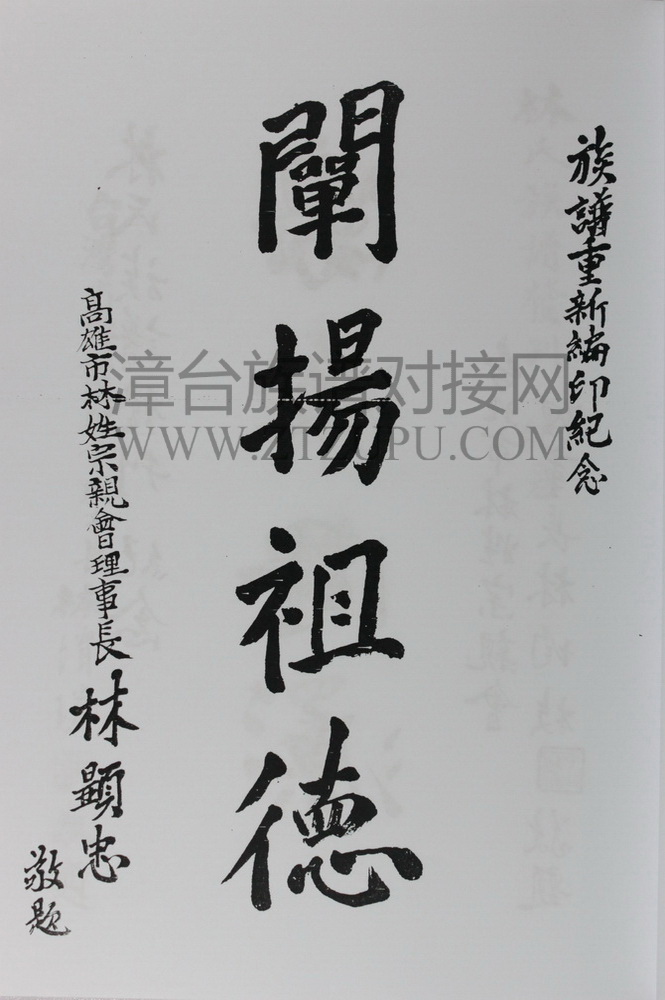 族譜重新編印紀念
闡揚祖德
高雄市林姓宗親會理事長 林顯忠
敬題
漳台族谱对接网
WWW.ZTZUPU.COM